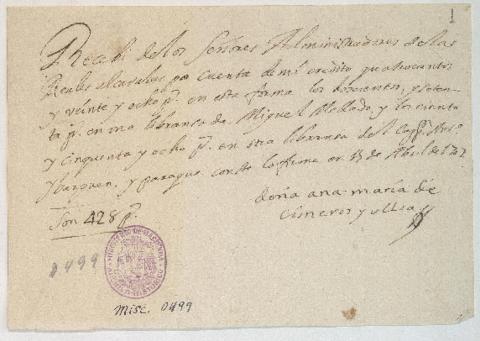 1
Recebi de los Señores Administradores de las
Reales alcavalas por cuenta de mi credito quatrocientos
y veinte y ocho ps. en esta forma los docientos, y seten-
ta ps. en una libranza de Miguel Mellado, y los ciento
y cinquenta y ocho ps. en otra libranza del Cappn.
y para que conste lo firme en de Abril de
doña ana maria de
cisneros y ulloa
Son 428 ps.
0499
Misc. 0499